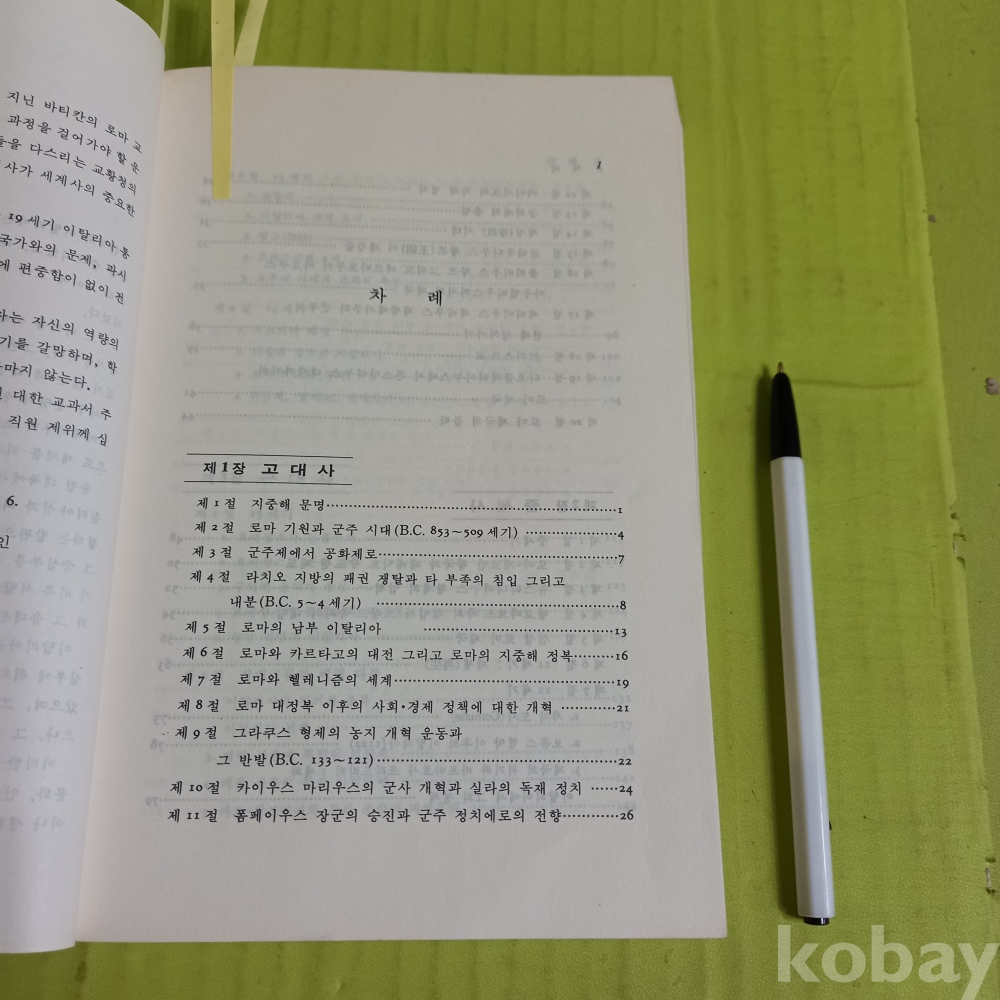 지닌 바티칸의 로마 교
과정을 걸어가야 할 운
들을 다스리는 교황청의
사가 세계사의 중요한
19세기 이탈리아 통
국가와의 문제, 파시
에 편중함이 없이 전
자는 자신의 역량의
기를 갈망하며, 학
마지 않는다.
대한 교과서 주
직원 제위께 심
6.
인
1
차 례
제1장 고대사
제1절 지중해 문명……1
제2절 로마 기원과 군주 시대(B.C. 853~509세기)……4
제3절 군주제에서 공화제로……7
제4절 라치오 지방의 패권 쟁탈과 타 부족의 침입 그리고
내분(B.C. 5~4세기) ……8
제5절 로마의 남부 이탈리아 ……13
제6절 로마와 카르타고의 대전 그리고 로마의 지중해 정복……16
제7절 로마와 헬레니즘의 세계……19
제8절 로마 대정복 이후의 사회·경제 정책에 대한 개혁……21
제9절 그라쿠스 형제의 농지 개혁 운동과
그 반발(B.C. 133~121)……22
제10절 카이우스 마리우스의 군사 개혁과 실라의 독재 정치 ……24
제11절 폼페이우스 장군의 승진과 군주 정치에로의 전향……26
kobay